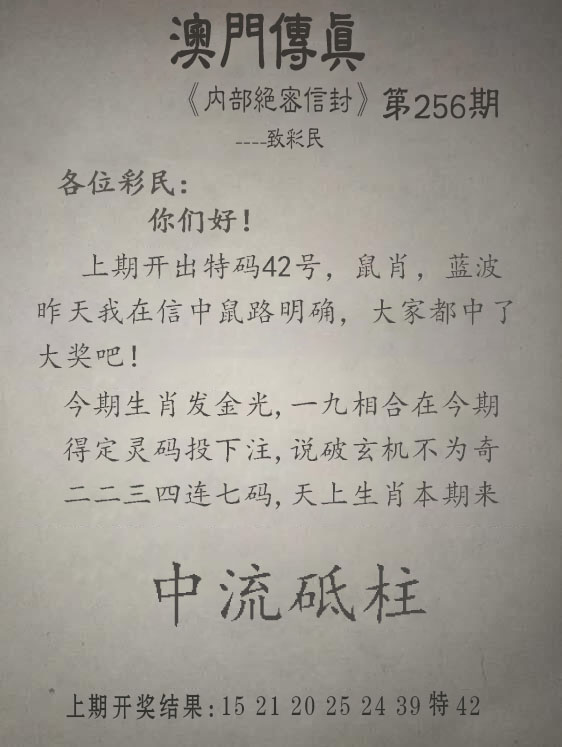 澳門傳眞
《内部絕密信封》第256期
----致彩民
各位彩民:
你们好!
上期开出特码42号，鼠肖，蓝波
昨天我在信中鼠路明确，大家都中了
大奖吧!
今期生肖发金光,一九相合在今期
得定灵码投下注,说破玄机不为奇
二二三四连七码,天上生肖本期来
中流砥柱
上期开奖结果:15 21 20 25 24 39 特 42